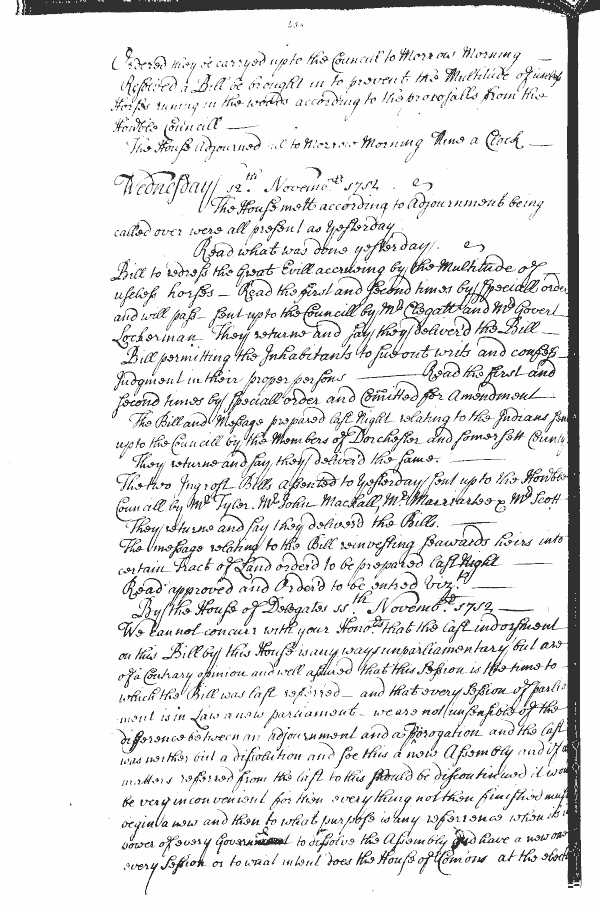 Ordered they be carryed up to the Council to Morrow Morning
Resolved a Bill be brought in to prevent the Multitude of useless
Horses runing in the woods according to the proposalls from the
Honble Councill —
The House adjourned till to Morrow Morning Nine a Clock —
Wednesday 12th Novembr 1712.
The House mett according to Adjournment being
called over were all present as yesterday
Read what was done yesterday.
Bill to redress the Great Evill accruing by the Multitude of
useless horses — Read the first and second times by speciall order
and will pass — sent up to the Councill by Mr Clegatt and Mr Govert
Lockerman They returne and say they deliverd the Bill —
Bill permitting the Inhabitants to sue out writs and confess
Judgment in their proper persons — Read the first and
second times by speciall order and Comitted for Amendment
The Bill and Message prepared last Night relating to the Indians sent
up to the Councill by the Members of Dorchester and Somersett County
They returne and say they deliverd the same. —
The two Ingrost Bills assented to yesterday sent up to the Honble
Councill by Mr Tyler. Mr John Mackall, Mr Marrvartee & Mr Scott
They returne and say they deliverd the Bills. —
The message relating to the Bill reinvesting Seawards heirs into
certain Tract of Land orderd to be prepared last Night —
Read approved and Orderd to be entred Vizt
By the House of Delegates 11th Novembr 1712 —
We cannot concurr with your Honors that the last indorsment
on this Bill by this House is any ways unparliamentary but are
of a Contrary opinion and well assured that this Session is the time to
which the Bill was last referred — and that every Session of parlia
ment is in Law a new parliament — we are not unsensible of the
difference between an adjournment and a prorogation and the last
was neither but a dissolution and soe this a new Assembly and if all
matters referred from the last to this should be discontinued it would
be very inconvenient for then every thing not then finished must
begin a new and then to what purpose is any referrence when its in
power of every Govern to dissolve the Assembly and have a new one
every Session or to what intent does the House of Comons at the